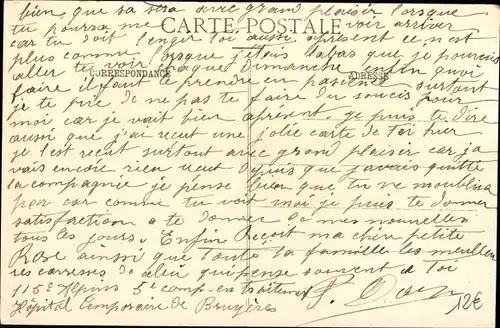 bien que sa sera avec grand plaisir lorsque
tu pourra me voir arriver
CARTE POSTALE
car tu doit l'engir toi aussi apresent ce n'est
plus comme lorsque j'étais labas que je pouvais
aller te voir chaque dimanche enfin quoi
CORRESPONDANCE
ADRESSE
faire il faut le prendre en pasiance surtout
je te prie de ne pas te faire du soucis pour
moi car je vait bien apresent. je puis te dire
aussi que j'ai recut une jolie carte de toi hier
je l'est recut surtout avec grand plaisir car ja
vais encore rien recut depuis que javais quitté
la compagnie je pense bien que tu ne moublira
par car comme tu voit moi je puis te donner
satisfaction a te donner de mes nouvelles
tous les jours. Enfin Reçoit ma chere petite
Rose ainsi que toute ta famille les meilleu
res caresses de celui qui pense souvent a toi
115e Alpins 5e comp. en traitement
Hôpital Temporaire de Bruyères
12€